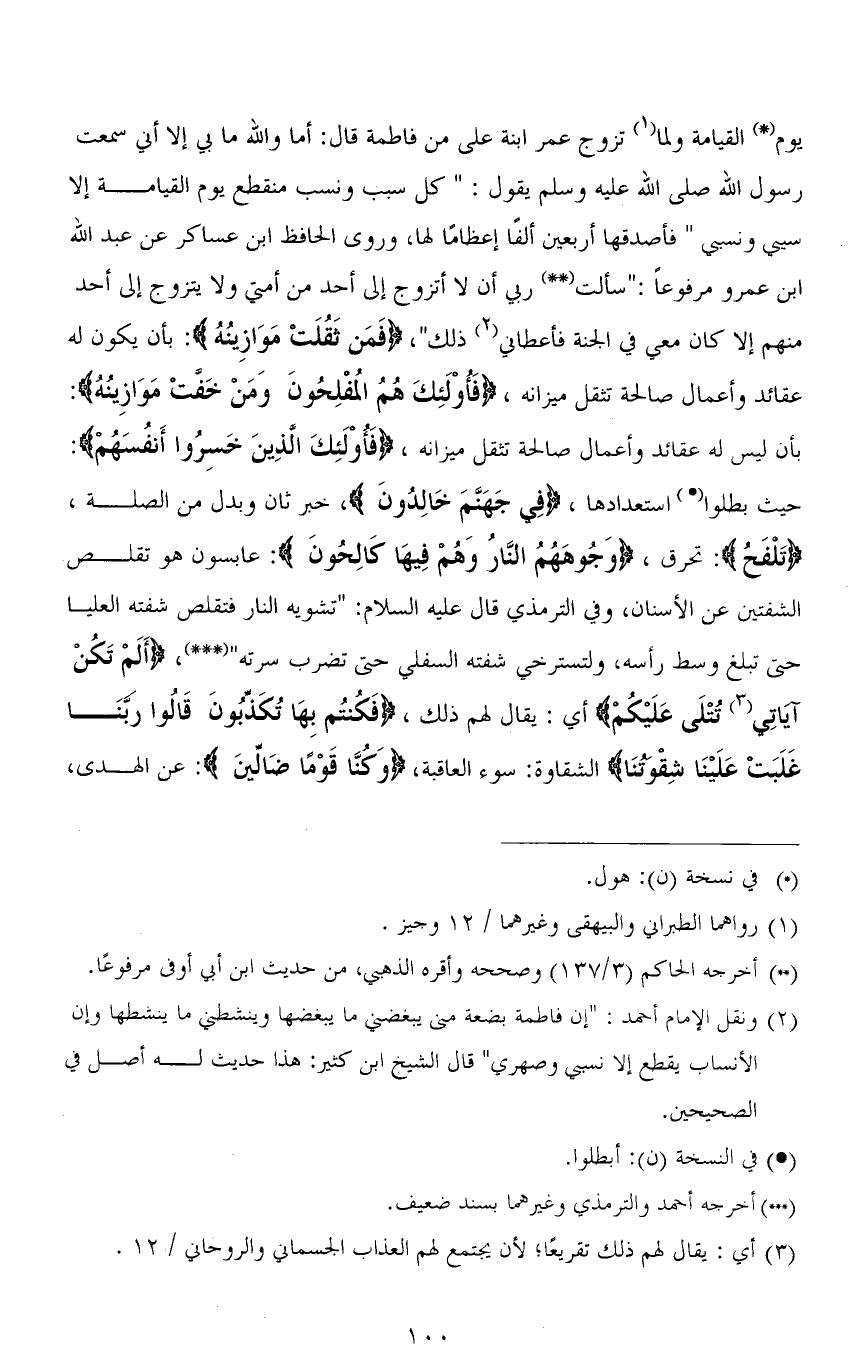 يوم(*) القيامة ولما(١) تزوج عمر ابنة على من فاطمة قال: أما والله ما بي إلا أني سمعت
رسول الله صلى الله عليه وسلم يقول : " كل سبب ونسب منقطع يوم القيامـــــة إلا
سببي ونسبي " فأصدقها أربعين ألفًا إعظامًا لها، وروى الحافظ ابن عساكر عن عبد الله
ابن عمرو مرفوعاً :"سألت(**) ربي أن لا أتزوج إلى أحد من أمتي ولا يتزوج إلى أحد
منهم إلا كان معي في الجنة فأعطاني(٢) ذلك"، ﴿فَمَن ثَقُلَتْ مَوَازِينُهُ ﴾: بأن يكون له
عقائد وأعمال صالحة تثقل ميزانه ، ﴿فَأُوْلَئِكَ هُمُ الْمُفْلِحُونَ وَمَنْ خَفَّتْ مَوَازِينُهُ﴾:
بأن ليس له عقائد وأعمال صالحة تثقل ميزانه ، ﴿فَأُوْلَئِكَ الَّذِينَ خَسِرُوا أَنفُسَهُمْ﴾:
حيث بطلوا(●) استعدادها ، ﴿فِي جَهَنَّمَ خَالِدُونَ ﴾، خبر ثان وبدل من الصلـــــة ،
﴿تَلْفَحُ﴾: تحرق ، ﴿وُجُوهَهُمُ النَّارُ وَهُمْ فِيهَا كَالِحُونَ ﴾: عابسون هو تقلـــص
الشفتين عن الأسنان، وفي الترمذي قال عليه السلام: "تشويه النار فتقلص شفته العليـا
حتى تبلغ وسط رأسه، ولتسترخي شفته السفلي حتى تضرب سرته"(***)، ﴿أَلَمْ تَكُنْ
آيَاتِي(٣) تُتْلَى عَلَيْكُمْ﴾ أي : يقال لهم ذلك ، ﴿فَكُنتُم بِهَا تُكَذِّبُونَ قَالُوا رَبَّنَـــــا
غَلَبَتْ عَلَيْنَا شِقْوَتُنَا﴾ الشقاوة: سوء العاقبة، ﴿وَكُنَّا قَوْمًا ضَالِّينَ ﴾: عن الهـــدى،
(*) في نسخة (ن): هول.
(١) رواهما الطبراني والبيهقى وغيرهما / ١٢ وجيز .
(**) أخرجه الحاكم (١٣٧/٣) وصححه وأقره الذهبي، من حديث ابن أبي أوفى مرفوعًا.
(٢) ونقل الإمام أحمد : "إن فاطمة بضعة منى يبغضني ما يبغضها وينشطني ما ينشطها وإن
الأنساب يقطع إلا نسبي وصهري" قال الشيخ ابن كثير: هذا حديث لـــــه أصـــل في
الصحيحين.
(●) في النسخة (ن): أبطلوا.
(***) أخرجه أحمد والترمذي وغيرهما بسند ضعيف.
(٣) أي : يقال لهم ذلك تقريعًا؛ لأن يجتمع لهم العذاب الجسماني والروحاني / ١٢ .
١٠٠